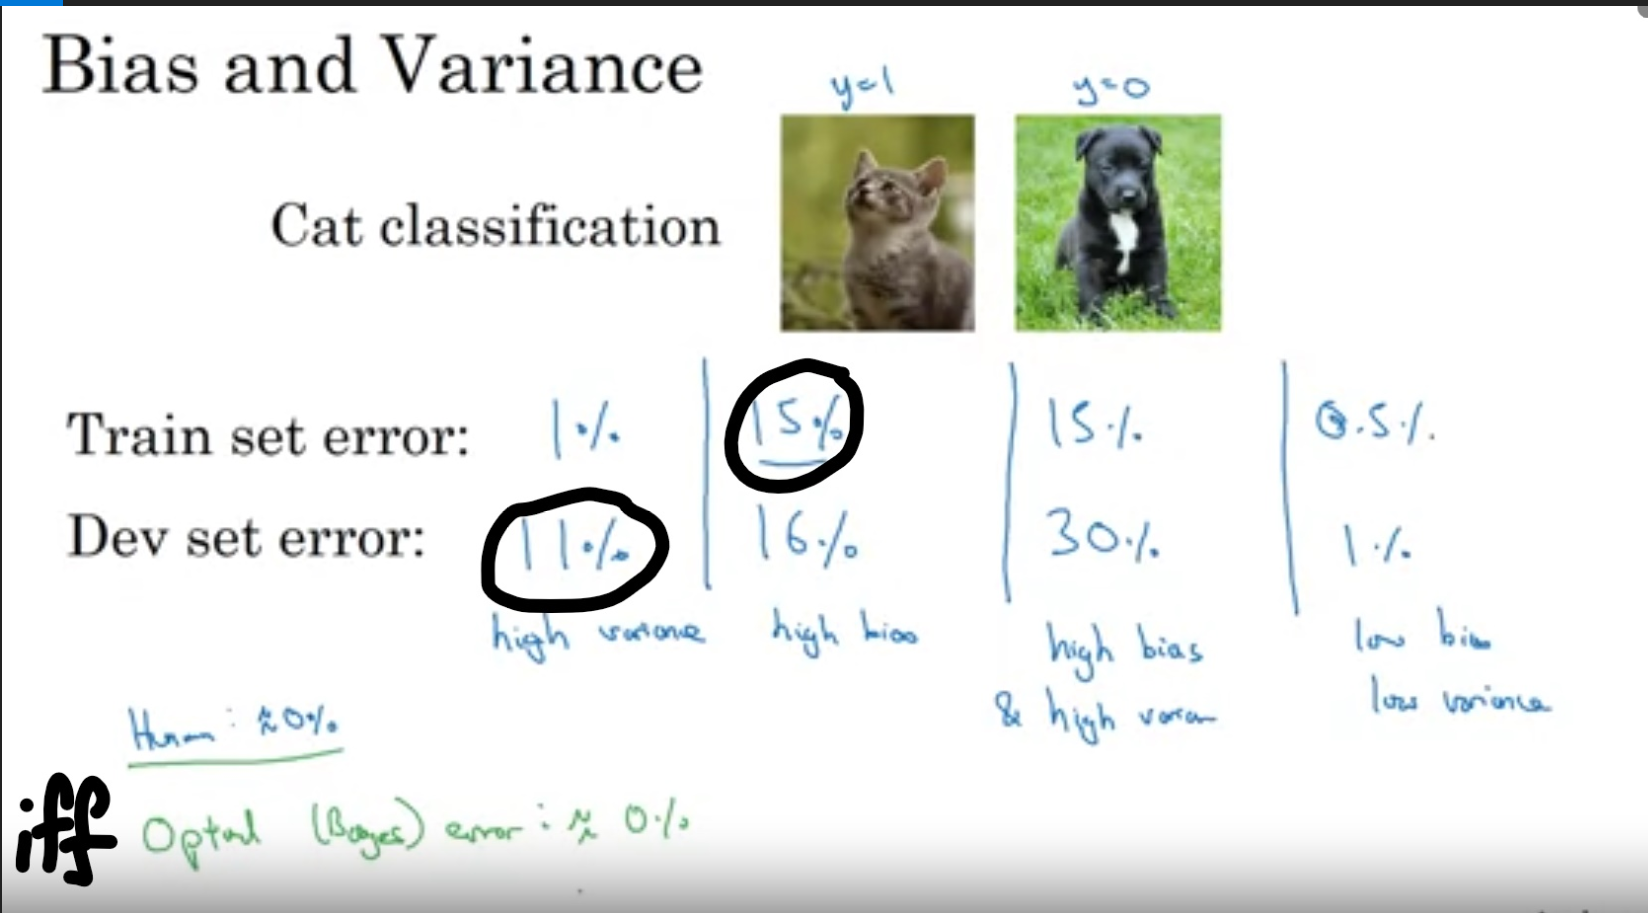 Bias and Variance
y=1 y=0
Cat classification
Train set error: 1% 15% 15% 0.5%
Dev set error: 11% 16% 30% 1%
high variance high bias high bias low bias
& high varian low variance
Human: ≈0%
iff Optimal (Bayes) error: ≈ 0%